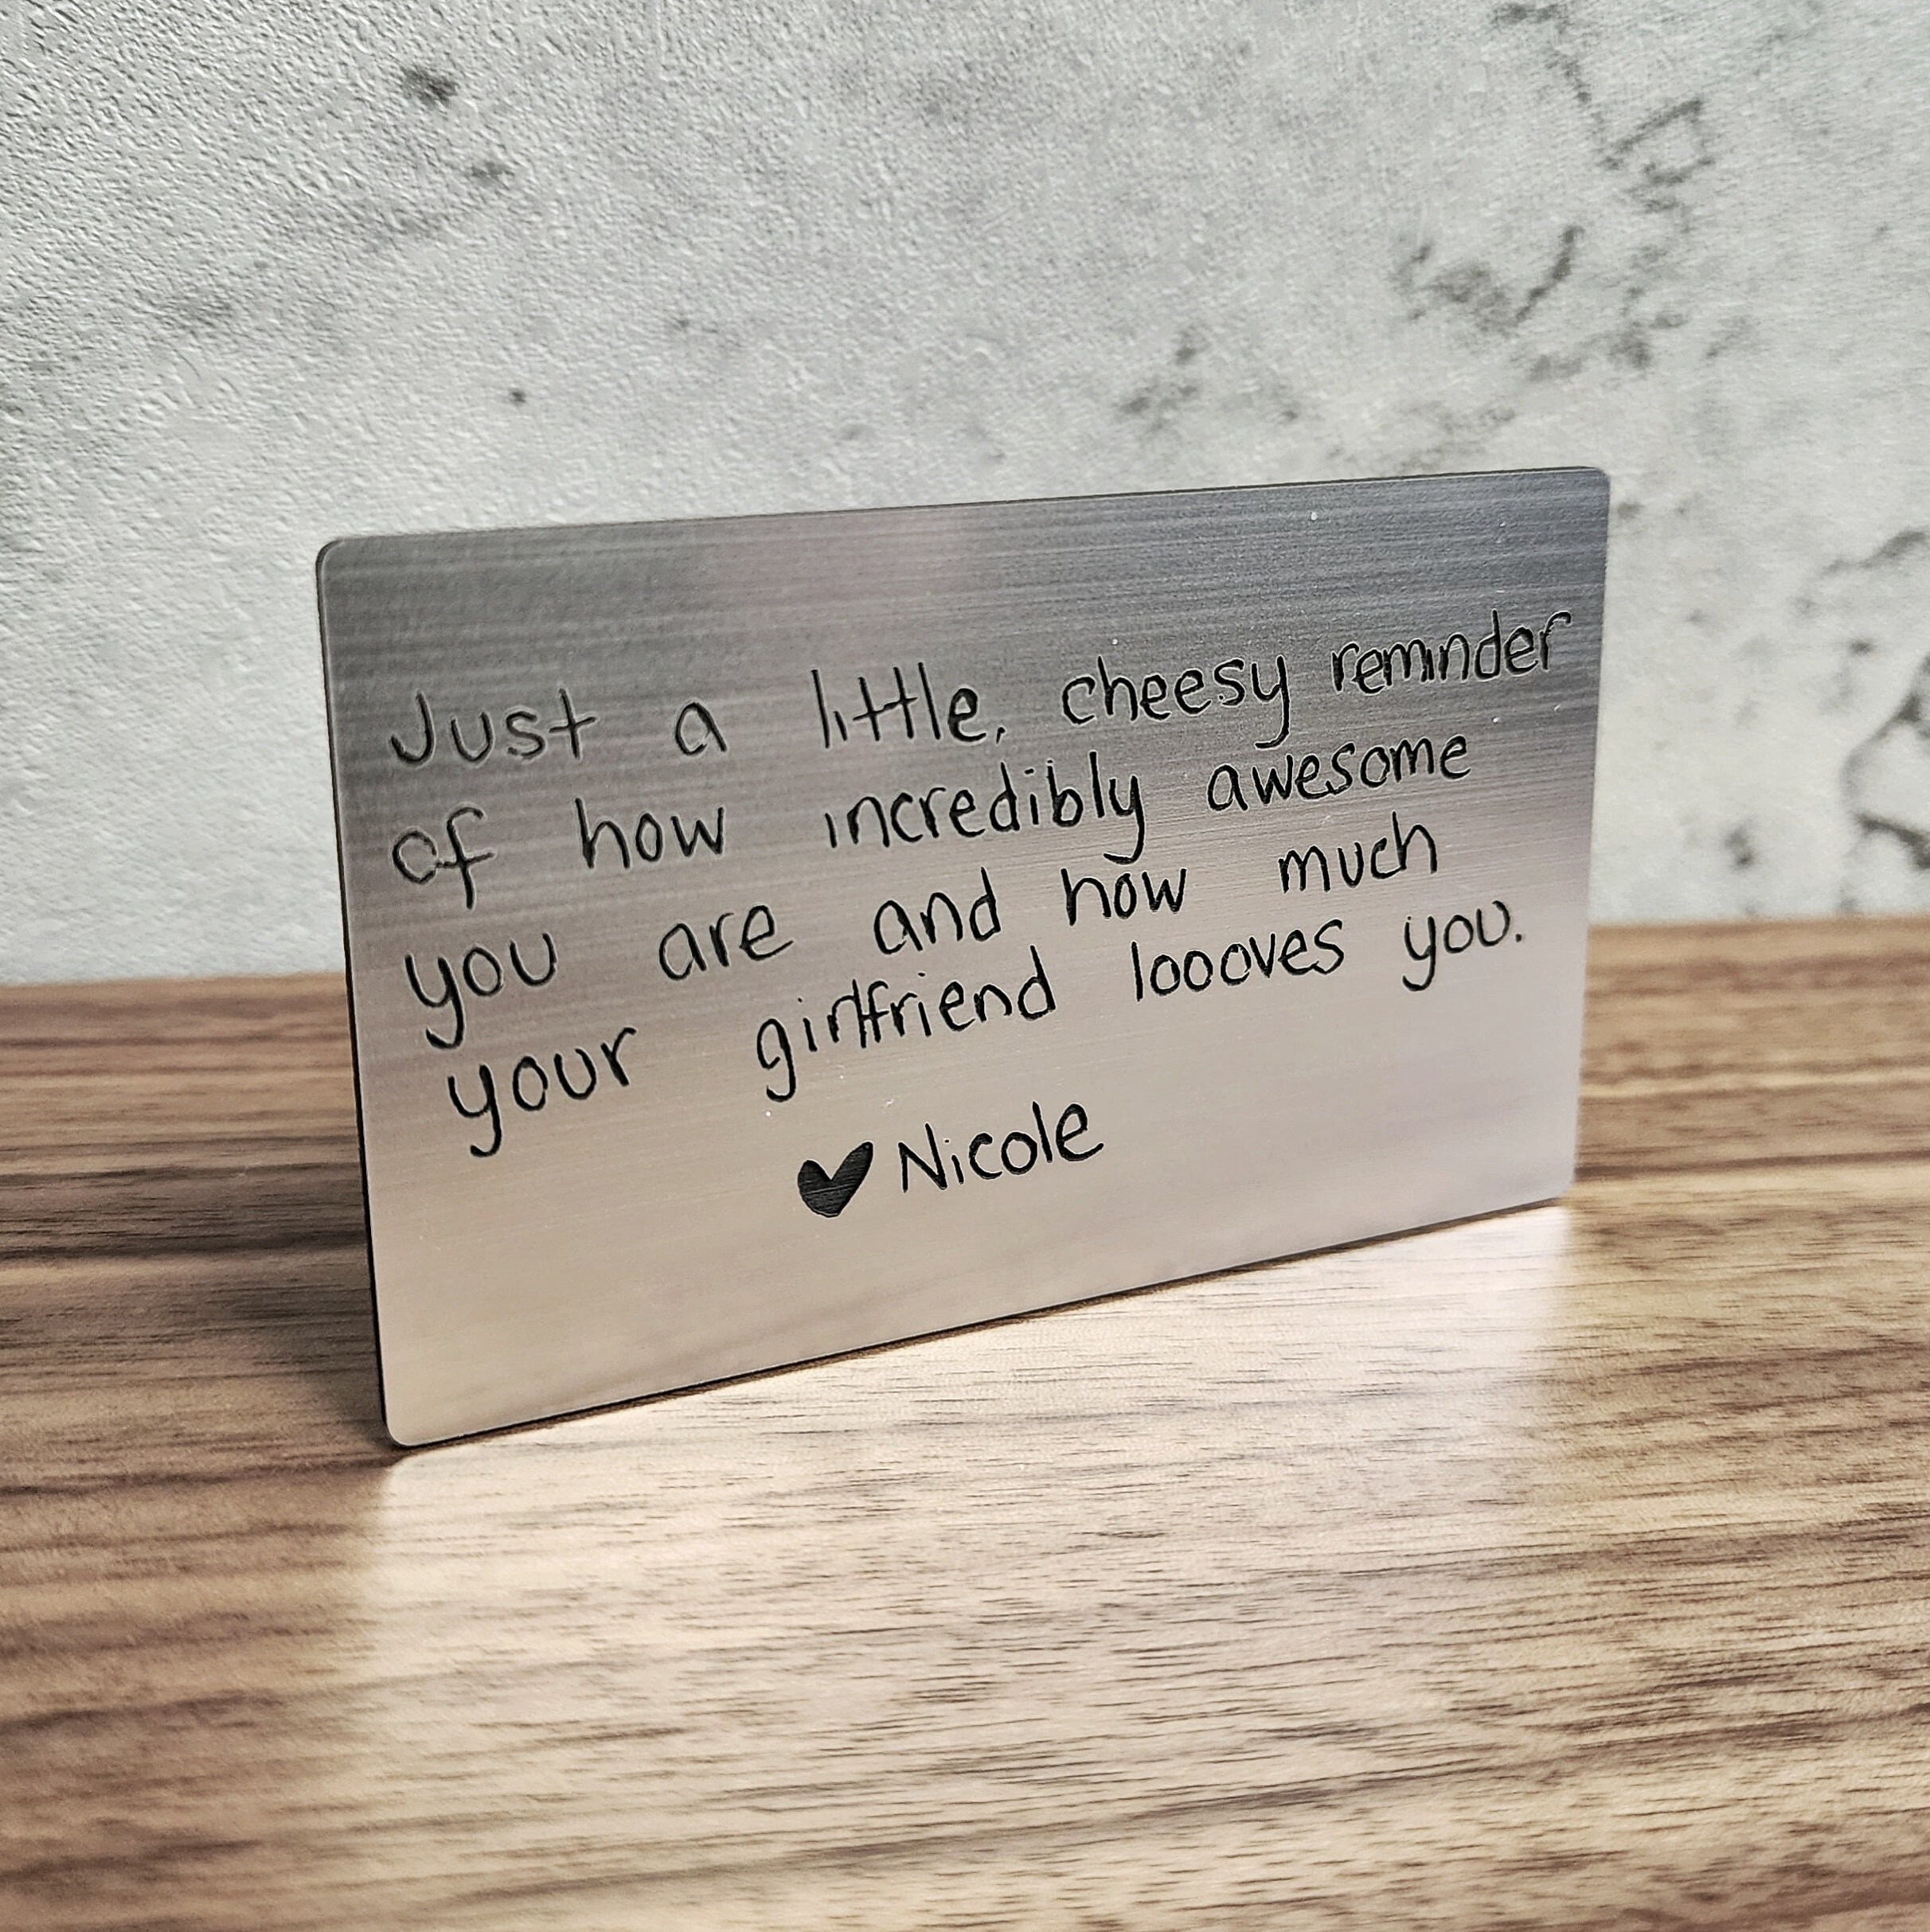 Just a little, cheesy reminder
of how incredibly awesome
you are and how much
your girlfriend loooves you.
♥ Nicole